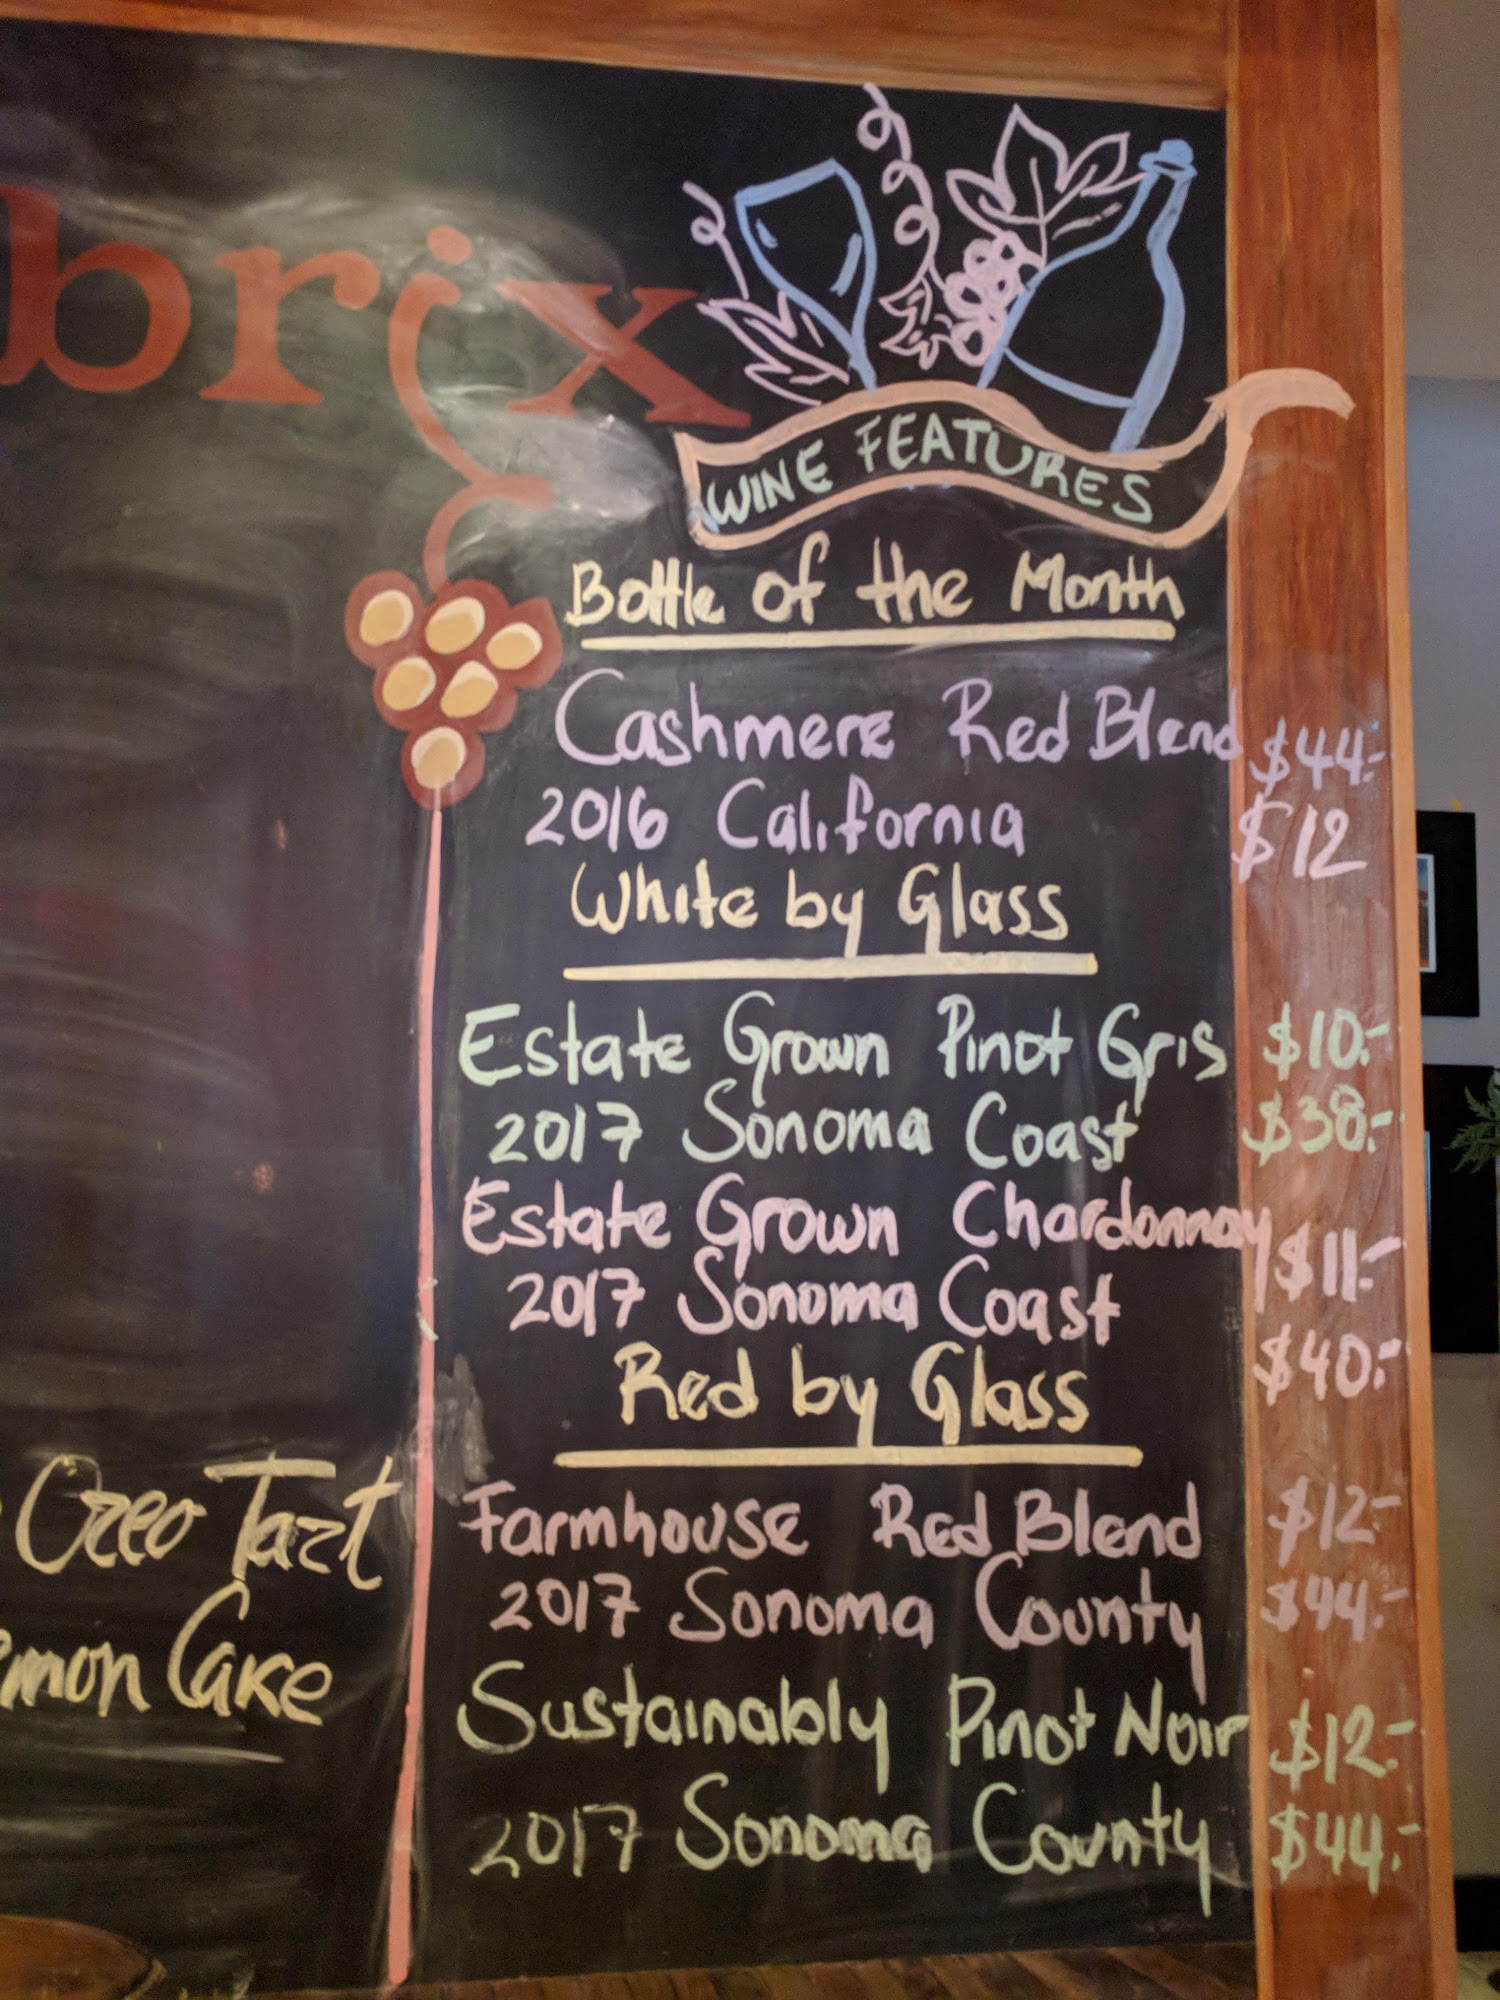 brix
WINE FEATURES
Bottle of the Month
Cashmere Red Blend $44.-
2016 California $12
White by Glass
Estate Grown Pinot Gris $10.-
2017 Sonoma Coast $38.-
Estate Grown Chardonnay $11.-
2017 Sonoma Coast $40.-
Red by Glass
Farmhouse Red Blend $12.-
2017 Sonoma County $44.-
Sustainably Pinot Noir $12.-
2017 Sonoma County $44.-
Oreo Tart
emon Cake